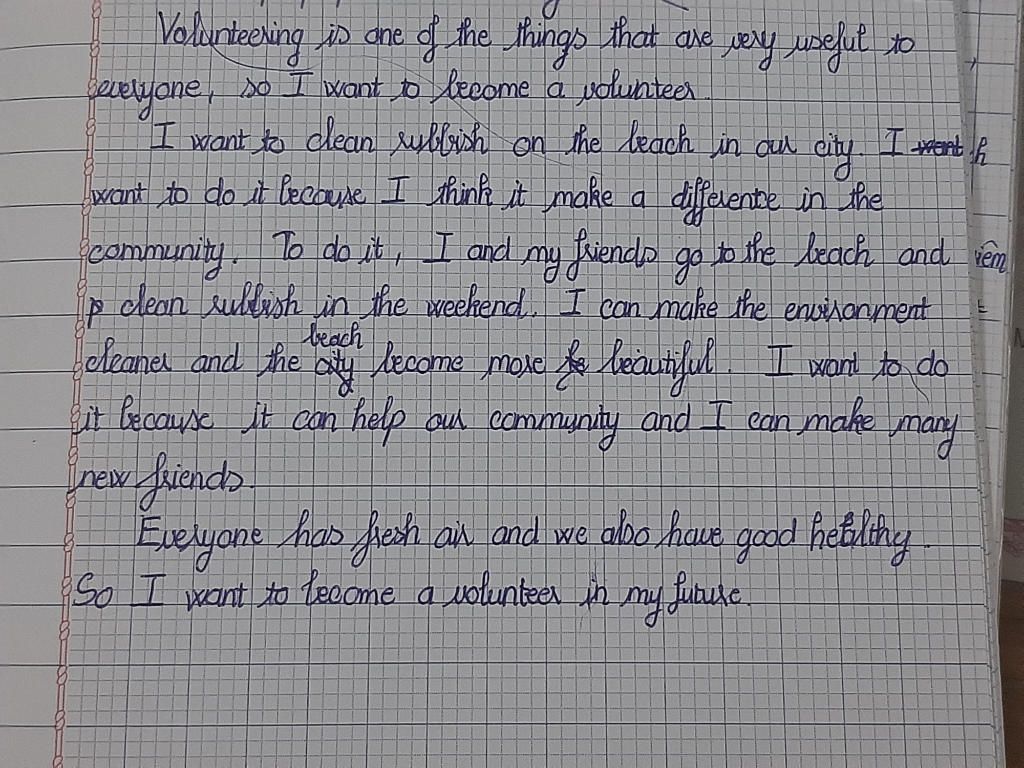 Volunteering is one of the things that are very useful to
everyone, so I want to become a volunteer.
I want to clean rubbish on the beach in our city. I want
want to do it because I think it make a difference in the
community. To do it, I and my friends go to the beach and
clean rubbish in the weekend. I can make the environment
beach
cleaner and the city become more beautiful. I want to do
it because it can help our community and I can make many
new friends.
Everyone has fresh air and we also have good healthy.
So I want to become a volunteer in my future.